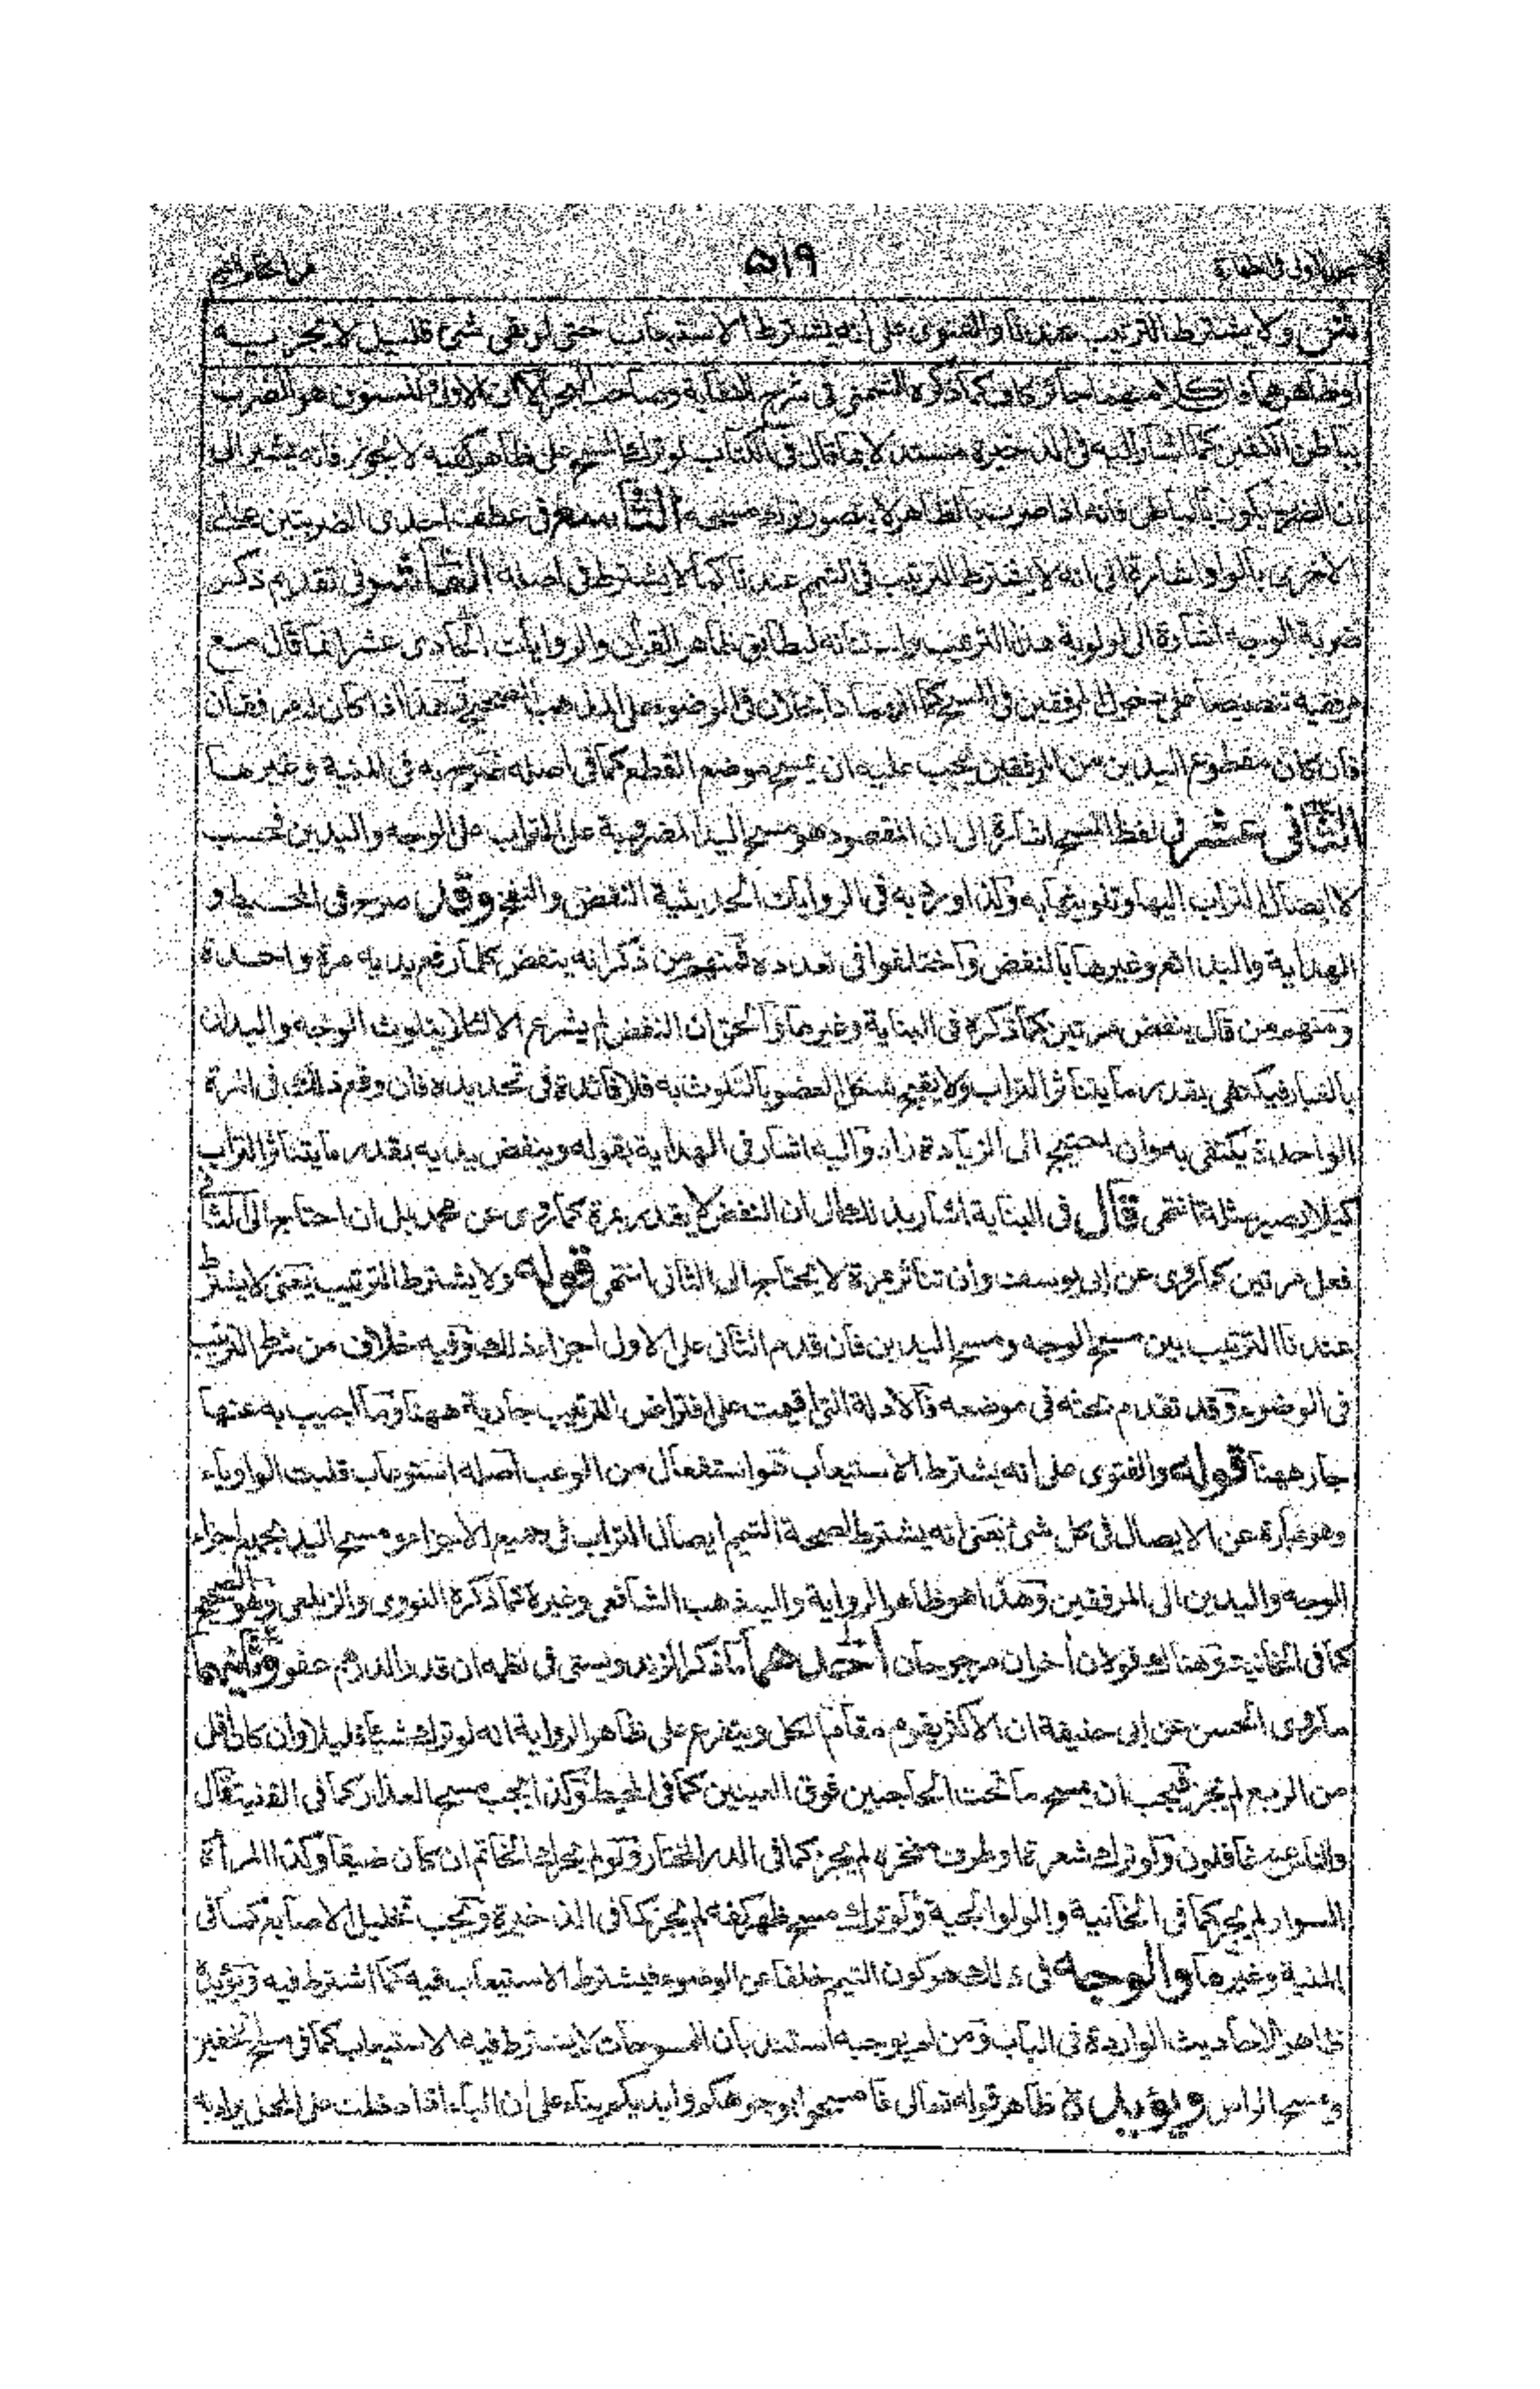 ٥١٩
ش ولا يشترط الترتيب عندنا والفتوى على انه يشترط الاستيعاب حتى لو بقى شئ قليل لا يجزيه
او ظاهرهما وان كلا منهما جائز كاف كما ذكره الشمنى فى شرح النقاية وصاحب البحر الا ان الاولى المسنون هو الضرب
بباطن الكفين كما اشار اليه فى الذخيرة مستدلا بما قال فى الكتاب لو ترك المسح على ظاهر كفيه لا يجوز فانه يشير الى
ان الضرب يكون بالباطن فانه اذا ضرب بالظاهر لا يتصور ترك مسحه التاسع فى عطف احدى الضربتين على
الاخرى بالواو اشارة الى انه لا يشترط الترتيب فى التيمم عندنا كما لا يشترط فى اصله العاشر فى تقديم ذكر
ضربة الوجه اشارة الى اولوية هذا الترتيب واستنانه ليطابق ظاهر القرآن والروايات الحادى عشر انما قال مع
مرفقيه تنصيصا على دخول المرفقين فى المسح كما انهما داخلان فى الوضوء على المذهب الصحيح هذا اذا كان له مرفقان
فان كان مقطوع اليدين من المرفقين يجب عليه ان يمسح موضع القطع كما فى اصله صرح به فى المنية وغيرها
الثانى عشر فى لفظ المسح اشارة الى ان المقصود هو مسح اليد المضروبة على التراب على الوجه واليدين فحسب
لا ايصال التراب اليها وتلويثها به ولذا ورد به فى الروايات الحديثية النفض والنفخ وقد صرح فى المحيط و
الهداية والبدائع وغيرها بالنفض واختلفوا فى تعدده فمنهم من ذكر انه ينفض كلما رفع يديه مرة واحدة
ومنهم من قال ينفض مرتين كما ذكره فى البناية وغيرها والحق ان النفض لم يشرع الا لئلا يتلوث الوجه واليدان
بالغبار فيكتفى بقدر ما يتناثر التراب ولا يقبح شكل العضو بالتلوث به فلا فائدة فى تحديده فان وقع ذلك فى المرة
الواحدة يكتفى به وان احتيج الى الزيادة زاد واليه اشار فى الهداية بقوله وينفض يديه بقدر ما يتناثر التراب
كيلا يصير مثلة انتهى قال فى البناية اشار بذلك الى ان النفض لا يقدر بمرة كما روى عن محمد بل ان احتاج الى الثانى
فعل مرتين كما روى عن ابى يوسف وان تناثر بمرة لا يحتاج الى الثانى انتهى قوله ولا يشترط الترتيب يعنى لا يشترط
عندنا الترتيب بين مسح الوجه ومسح اليدين فان قدم الثانى على الاول اجزاه ذلك وفيه خلاف من شرط الترتيب
فى الوضوء وقد تقدم بحثه فى موضعه والادلة التى اقيمت على افتراض الترتيب جارية ههنا وما اجيب به عنها
جار ههنا قوله والفتوى على انه يشترط الاستيعاب هو استفعال من الوعب اصله استوعاب قلبت الواو ياء
وهو عبارة عن الايصال فى كل شئ يعنى انه يشترط لصحة التيمم ايصال التراب فى جميع الاجزاء ومسح اليد بجميع اجزاء
الوجه واليدين الى المرفقين وهذا هو ظاهر الرواية واليه ذهب الشافعى وغيره كما ذكره النووى والزيلعى وهو الصحيح
كما فى الخانية وهناك قولان اخران مرجوحان احدهما ما ذكر الزندويستى فى نظمه ان قدر الدرهم عفو وثانيهما
ما روى الحسن عن ابى حنيفة ان الاكثر يقوم مقام الكل ويتفرع على ظاهر الرواية انه لو ترك شيئا قليلا وان كان اقل
من الربع لم يجز فيجب ان يمسح ما تحت الحاجبين فوق العينين كما فى المحيط وكذا يجب مسح العذار كما فى القنية قال
والناس عنه غافلون ولو ترك شعرة او طرف منخره لم يجز كما فى الدر المختار ولو لم يحرك الخاتم ان كان ضيقا وكذا المرأة
السوار لم يجز كما فى الخانية والولوالجية ولو ترك مسح ظهر كفه لم يجز كما فى الذخيرة ويجب تخليل الاصابع كما فى
المنية وغيرها والوجه فى ذلك هو كون التيمم خلفا عن الوضوء فيشترط الاستيعاب فيه كما اشترط فيه ويؤيده
ظاهر الاحاديث الواردة فى الباب ومن لم يوجبه استدل بان الممسوحات لا يشترط فيه الاستيعاب كما فى مسح الخفين
ومسح الراس ويؤيده ظاهر قوله تعالى فامسحوا بوجوهكم وايديكم بناء على ان الباء اذا دخلت على المحل يراد به